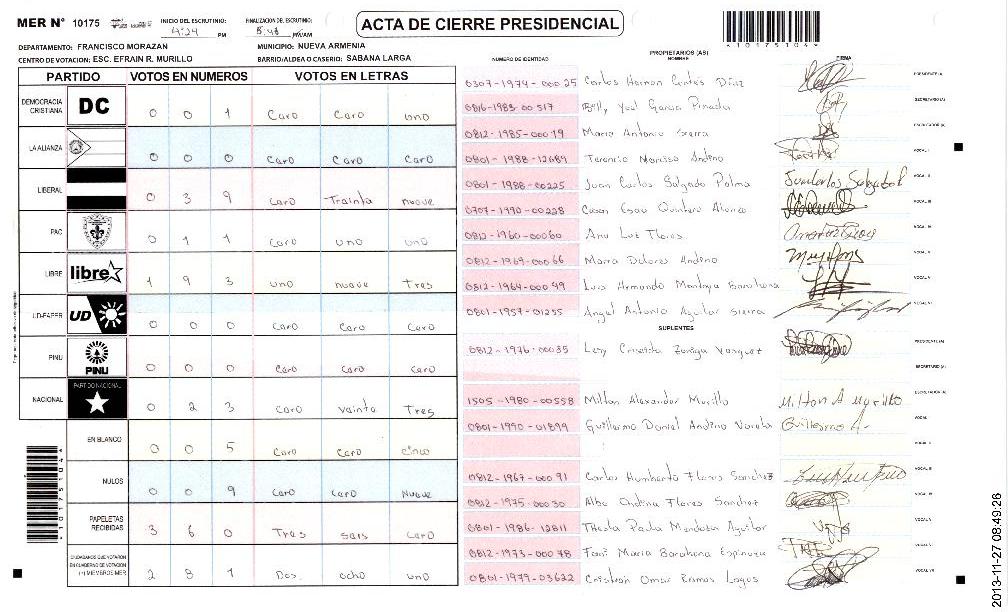 MER N° 10175 INICIO DEL ESCRUTINIO: 4:24 PM FINALIZACION DEL ESCRUTINIO: 5:48 PM/AM
ACTA DE CIERRE PRESIDENCIAL
*10175104*
DEPARTAMENTO: FRANCISCO MORAZAN MUNICIPIO: NUEVA ARMENIA
CENTRO DE VOTACION: ESC. EFRAIN R. MURILLO BARRIO/ALDEA O CASERIO: SABANA LARGA
PARTIDO VOTOS EN NUMEROS VOTOS EN LETRAS
DEMOCRACIA CRISTIANA DC 0 0 1 Caro Caro uno
LA ALIANZA 0 0 0 Caro Caro Caro
LIBERAL 0 3 9 Caro Trainta nueve
PAC 0 1 1 Caro uno uno
LIBRE libre 1 9 3 uno nueve Tres
UD-FAPER UD 0 0 0 Caro Caro Caro
PINU PINU 0 0 0 Caro Caro Caro
NACIONAL PARTIDO NACIONAL 0 2 3 Caro vainte Tres
EN BLANCO 0 0 5 Caro Caro cinco
NULOS 0 0 9 Caro Caro Nueve
PAPELETAS RECIBIDAS 3 6 0 Tres sais Caro
CIUDADANOS QUE VOTARON EN CUADERNO DE VOTACION (+) MIEMBROS MER 2 8 1 Dos ocho uno
NUMERO DE IDENTIDAD PROPIETARIOS (AS) NOMBRE FIRMA
0307-1974-00025 Carlos Hernan Cortés Díaz PRESIDENTE (A)
0816-1983-00517 Belly Yoel Garcia Pineda SECRETARIO (A)
0812-1985-00019 Mario Antonio Sierra ESCRUTADOR (A)
0801-1988-12689 Terencio Narciso Andino VOCAL I
0801-1988-00225 Juan Carlos Salgado Palma Juan Carlos Salgado P VOCAL II
0707-1990-00228 Cesar Esau Quintero Alonzo VOCAL III
0812-1960-00060 Ana Luz Flores VOCAL IV
0812-1969-00066 Maria Dolores Andino VOCAL V
0812-1964-00099 Luis Armando Montoya Barahona VOCAL VI
0801-1957-01255 Angel Antonio Aguilar Sierra
SUPLENTES
0812-1976-00035 Lesy Griselda Zuniga Vasquez PRESIDENTE (A)
SECRETARIO (A)
1505-1980-00558 Milton Alexander Murillo Milton A Murillo ESCRUTADOR (A)
0801-1990-01899 Guillermo Daniel Andino Varela Guillermo A. VOCAL I
VOCAL II
0812-1967-00091 Carlos Humberto Flores Sanchez VOCAL III
0812-1975-00030 Alba Flores Sanchez VOCAL IV
0801-1986-12811 Paola Mendoza Aguilar VOCAL V
0812-1973-00078 Maria Barahona Espinoza VOCAL VI
0801-1979-03622 Cristian Omar Ramos Lagos VOCAL VII
2013-11-27 08:49:26